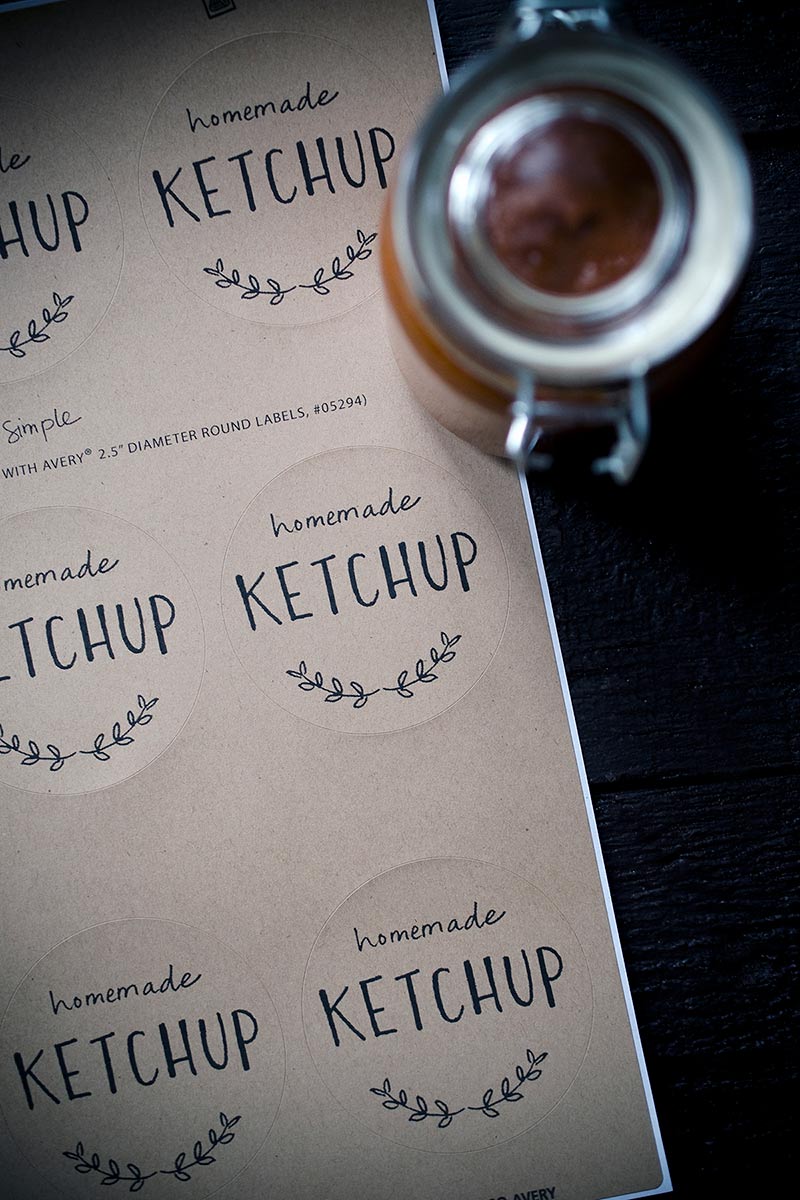 homemade
KETCHUP
HUP
Simple
WITH AVERY® 2.5" DIAMETER ROUND LABELS, #05294)
homemade
KETCHUP
memade
TCHUP
homemade
KETCHUP
homemade
KETCHUP
AVERY